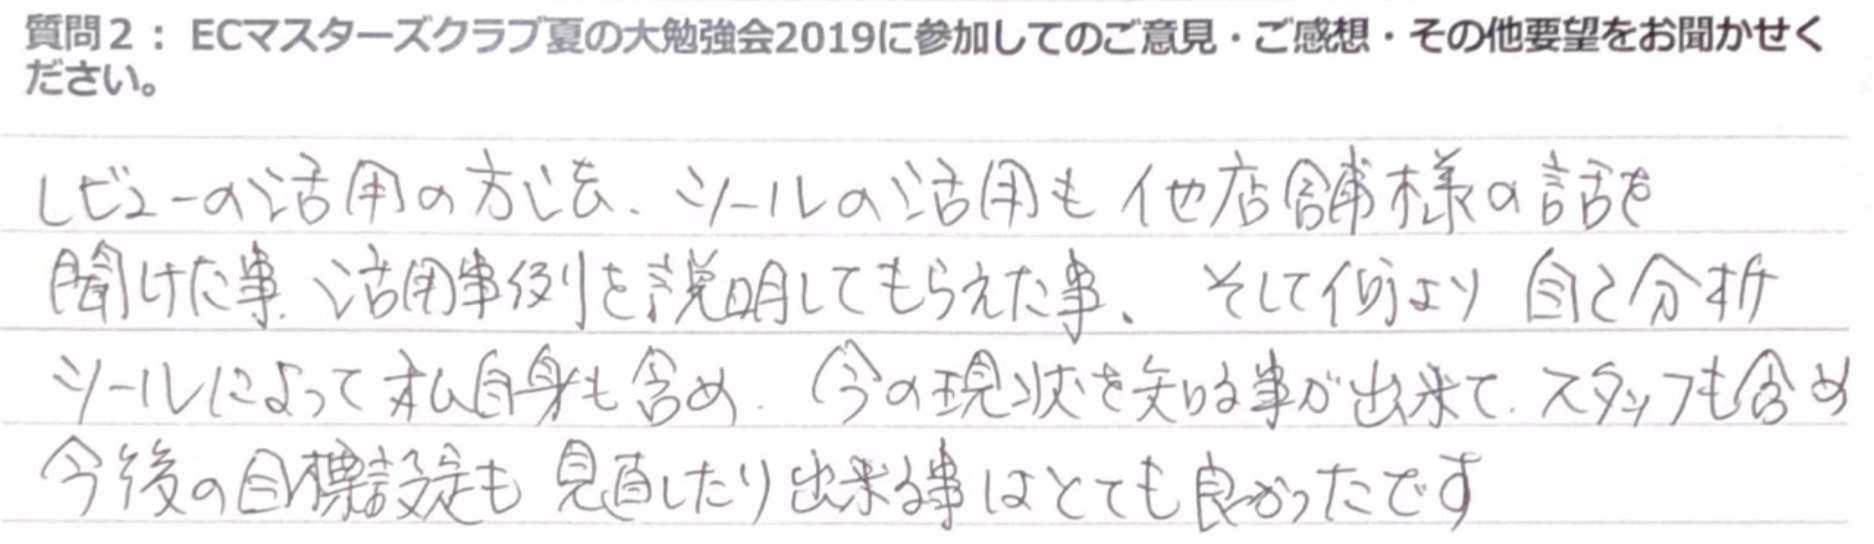 質問2：ECマスターズクラブ夏の大勉強会2019に参加してのご意見・ご感想・その他要望をお聞かせく
ださい。
レビューの活用の方法、ツールの活用も他店舗様の話を
聞けた事、活用事例を説明してもらえた事、そして何より自己分析
ツールによって私自身も含め、今の現状を知る事が出来て、スタッフも含め
今後の目標設定も見直したり出来る事はとても良かったです